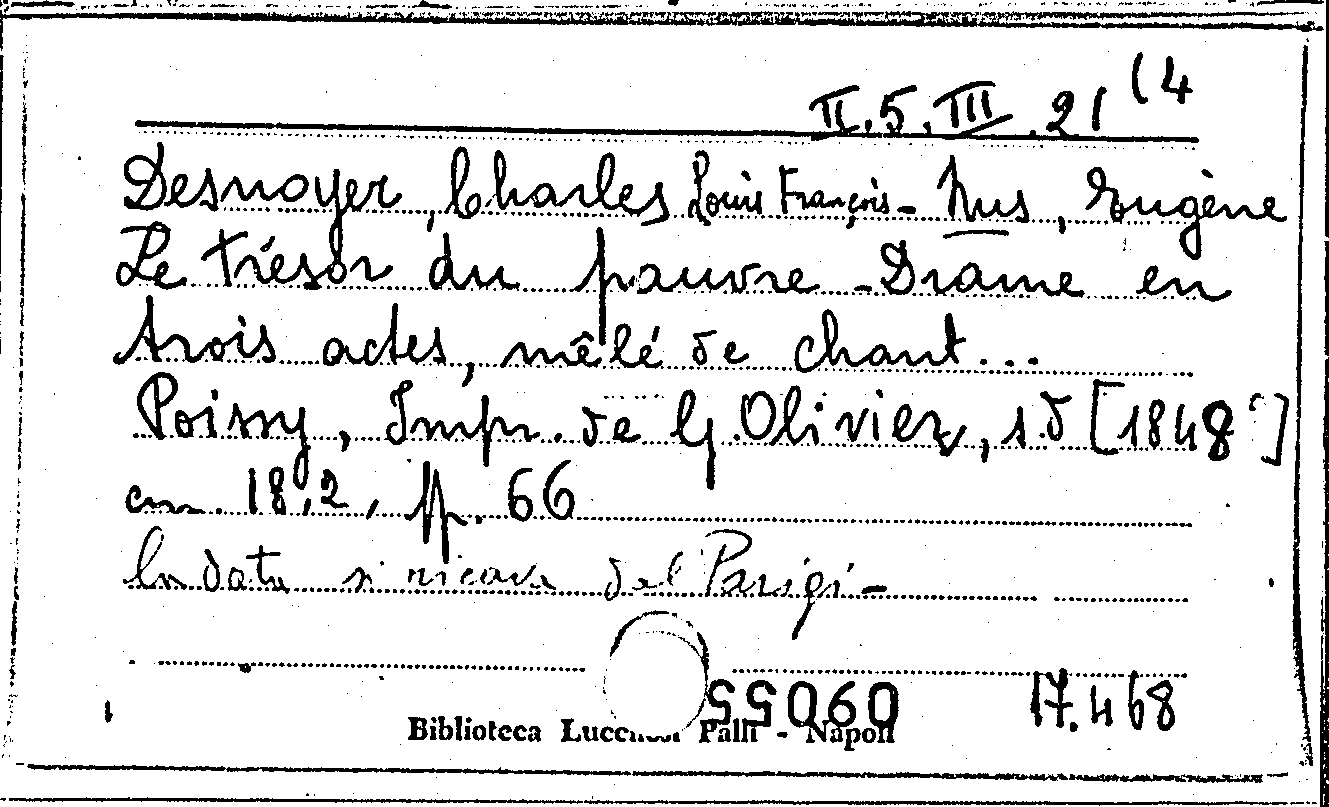 II.5.III.21 (4
Desnoyer, Charles Louis François - Nus, Eugène
Le trésor du pauvre - Drame en
trois actes, mêlé de chant...
Poissy, Impr. de G. Olivier, s.d [1848]
cm. 18,2, pp. 66
La data si ricava dal Parigi -
09055 17.468
Biblioteca Lucchesi Palli - Napoli